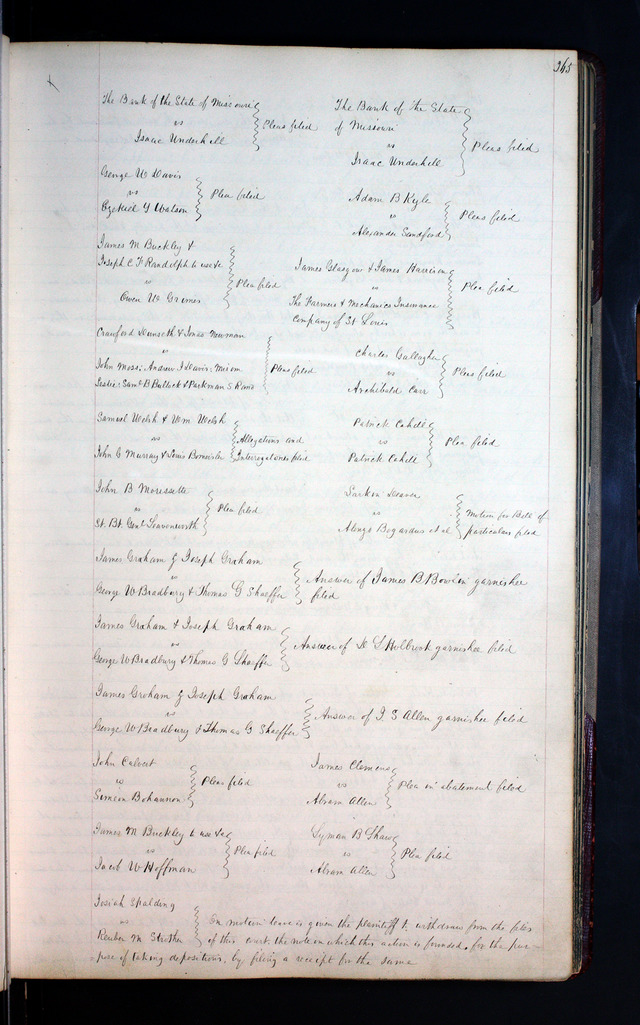 365
The Bank of the State of Missouri
vs
Isaac Underhill
Pleas filed
The Bank of the State
of Missouri
vs
Isaac Underhill
Pleas filed
George W Davis
vs
Ezekiel Y Watson
Plea filed
Adam B Kyle
vs
Alexander Sandford
Pleas filed
James M Buckley &
Joseph C F Randolph to use &c
vs
Owen W Grimes
Plea filed
James Glasgow & James Harrison
vs
The Farmers & Mechanics Insurance
Company of St Louis
Plea filed
Crawford Dunseth & Jonas Newman
vs
John Moss, Andrew J Davis,
Leslie, Saml B Bullock & Parkman S
Pleas filed
Charles Gallagher
vs
Archibald Carr
Pleas filed
Samuel Welsh & Wm Welsh
vs
John C Murray & Louis
Allegations and
Interrogatories filed
Patrick Cahill
vs
Patrick Cahill
Plea filed
John B Morissette
vs
St. Bt. Genl Leavenworth
Plea filed
Larkin Deaver
vs
Alonzo Bogardus et al
Motion for Bill of
particulars filed
James Graham & Joseph Graham
vs
George W Bradbury & Thomas G Shaeffer
Answer of James B Bowlin garnishee
filed
James Graham & Joseph Graham
vs
George W Bradbury & Thomas G Shaeffer
Answer of Holbrook garnishee filed
James Graham & Joseph Graham
vs
George W Bradbury & Thomas G Shaeffer
Answer of T S Allen garnishee filed
John Calvert
vs
Simeon Bohannon
Pleas filed
James Clemens
vs
Abram Allen
Plea in abatement filed
James M Buckley to use &c
vs
Jacob W Hoffman
Plea filed
Lyman B Shaw
vs
Abram Allen
Plea filed
Josiah Spalding
vs
Reuben M Strother
On motion leave is given the plaintiff to withdraw from the files
of this court the note on which this action is founded, for the pur-
pose of taking depositions, by filing a receipt for the same